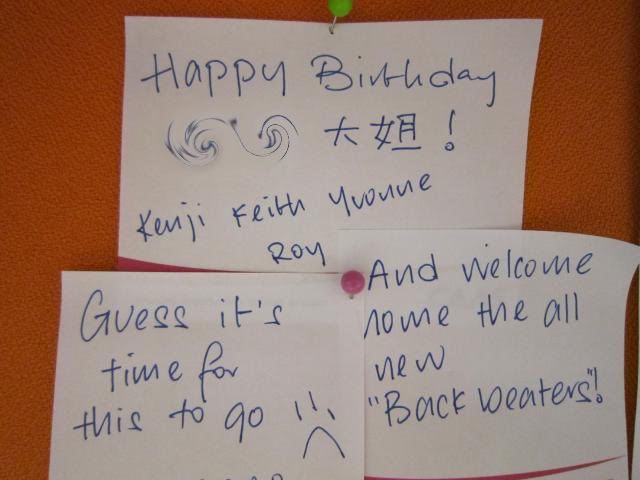 Happy Birthday
大姐!
Kenji Keith Yvonne
Roy
Guess it's
time for
this to go !!
And welcome
home the all
new
"Back beaters"!